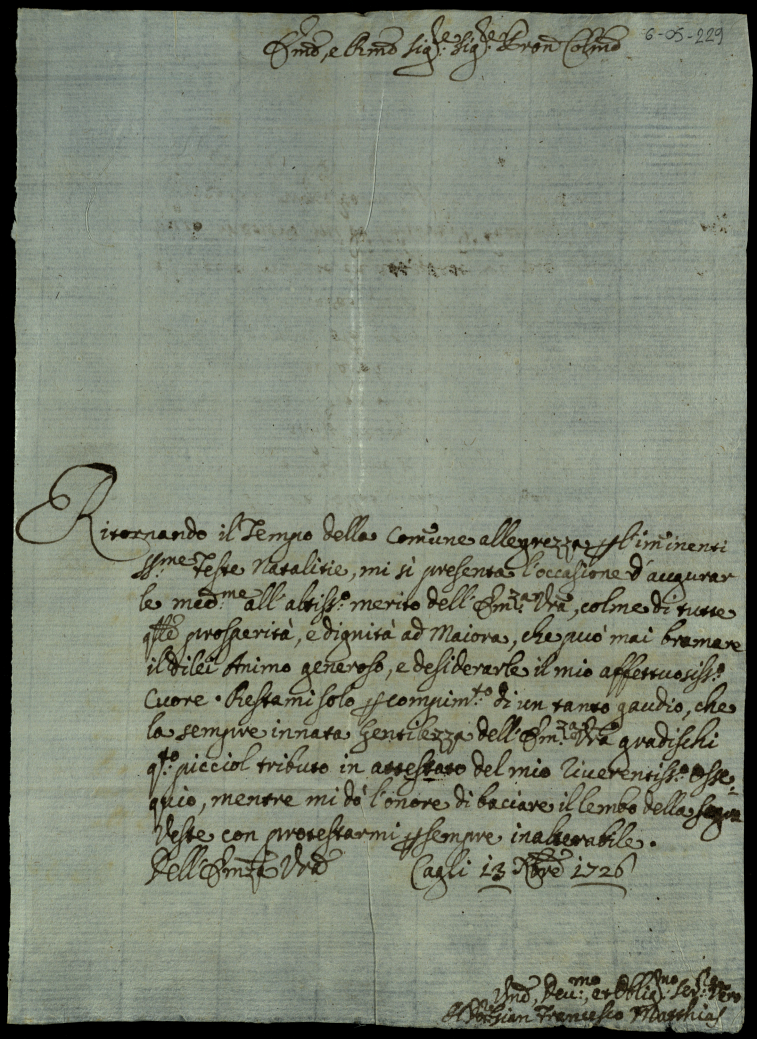 Em̃o, e Rm̃o Sig.r Sig.r Pron Colm̃o
6-05-229
Ritornando il Tempo della Comũne allegrezza p l'im̃inenti
SS.me Feste Natalitie, mi si presenta l'occasione d'augurar
le med.me all'altiss.o merito dell'Em.za Vrã, colme di tutte
q̃lle prosperità, e dignità ad Maiora, che può mai bramare
il di lei Animo generoso, e desiderarle il mio affettuosiss.o
Cuore. Restami solo p compim.to di un tanto gaudio, che
la sempre innata Gentilezza dell'Em.za Vrã gradischi
q.to picciol tributo in attestato del mio riverentiss.o osse-
quio, mentre mi dò l'onore di baciare il lembo della Sagra
Veste con protestarmi p sempre inalterabile.
Dell'Em̃za Vrã Cagli 13 Xbre 1726
Um̃o, Dev.mo, et Oblig.mo Ser.re vero
Gian Francesco Matthias